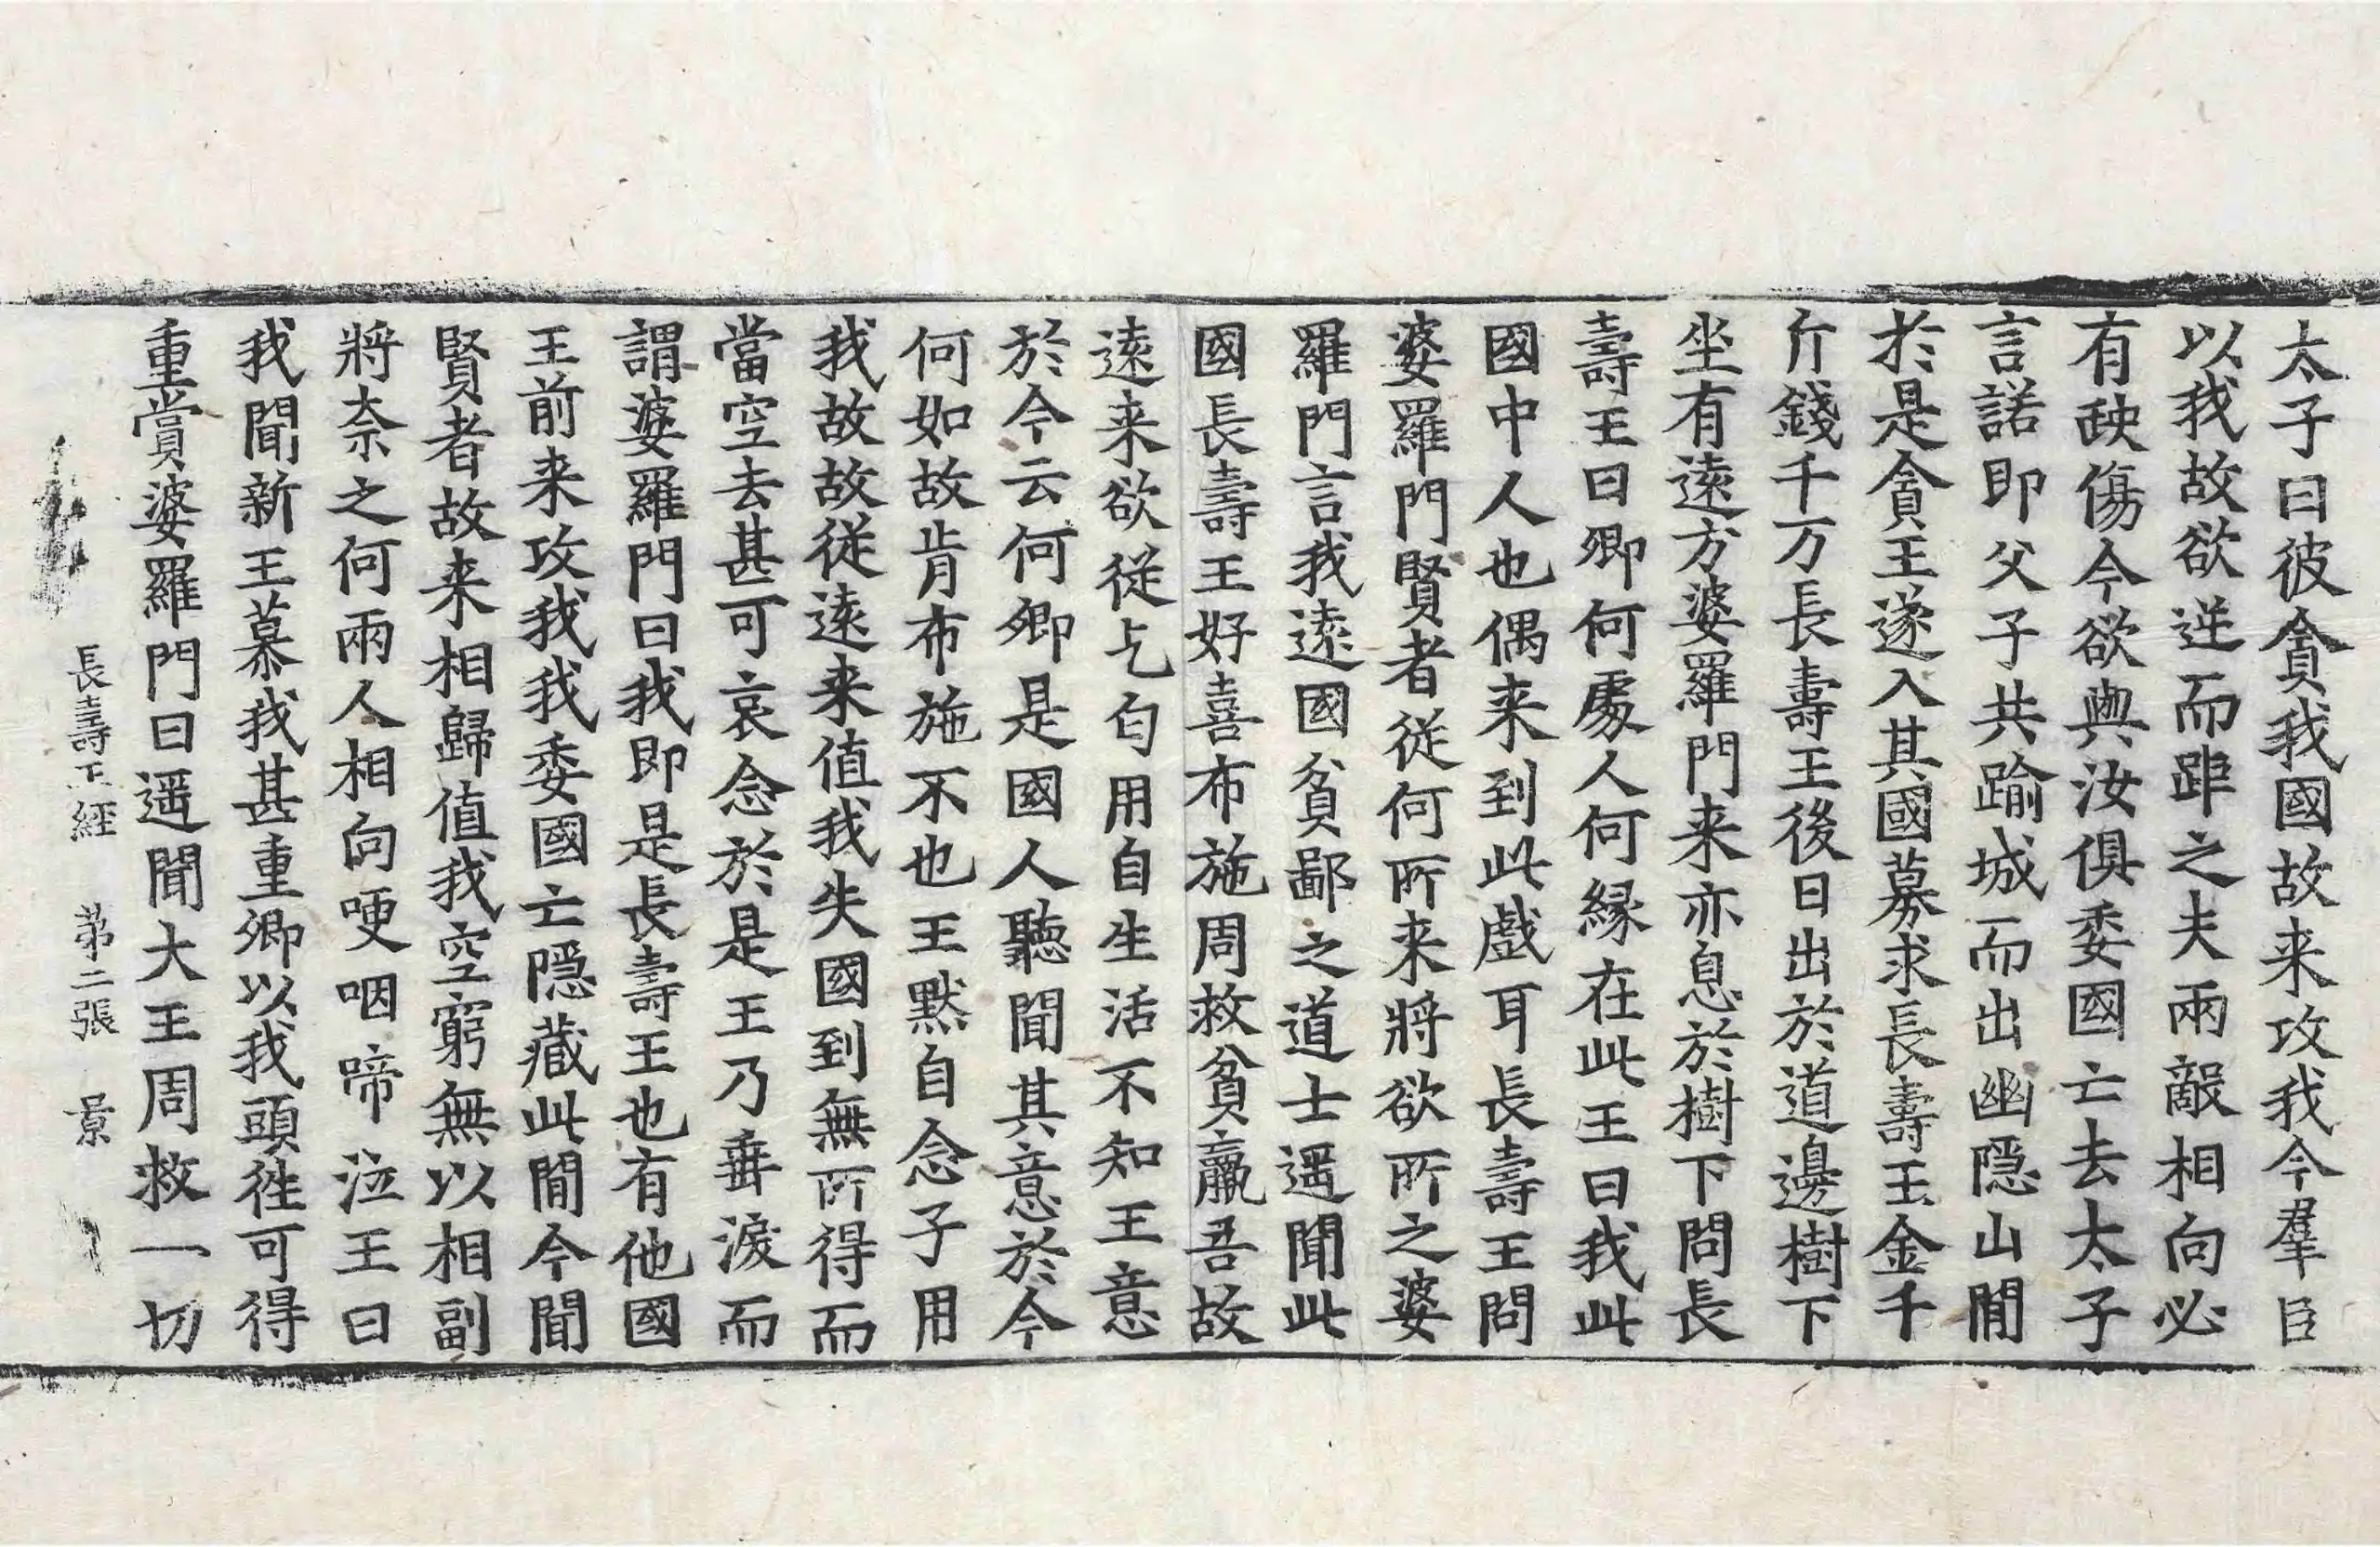 太子曰彼貪我國故来攻我今羣臣
以我故欲逆而距之夫兩敵相向必
有殃傷今欲與汝俱委國亡去太子
言諾即父子共踰城而出幽隱山閒
於是貪王遂入其國募求長壽王金千
斤錢千万長壽王後日出於道邊樹下
坐有遠方婆羅門来亦息於樹下問長
壽王曰卿何處人何緣在此王曰我此
國中人也偶来到此戲耳長壽王問
婆羅門賢者從何所来將欲所之婆
羅門言我遠國貧鄙之道士遥聞此
國長壽王好喜布施周救貧羸吾故
遠来欲從乞匂用自生活不知王意
於今云何卿是國人聽聞其意於今
何如故肯布施不也王默自念子用
我故故從遠来值我失國到無所得而
當空去甚可哀念於是王乃垂淚而
謂婆羅門曰我即是長壽王也有他國
王前来攻我我委國亡隱藏此閒今聞
賢者故来相歸值我空窮無以相副
將奈之何兩人相向哽咽啼泣王曰
我聞新王慕我甚重卿以我頭徃可得
重賞婆羅門曰遥聞大王周救一切
長壽王經 苐二張 景